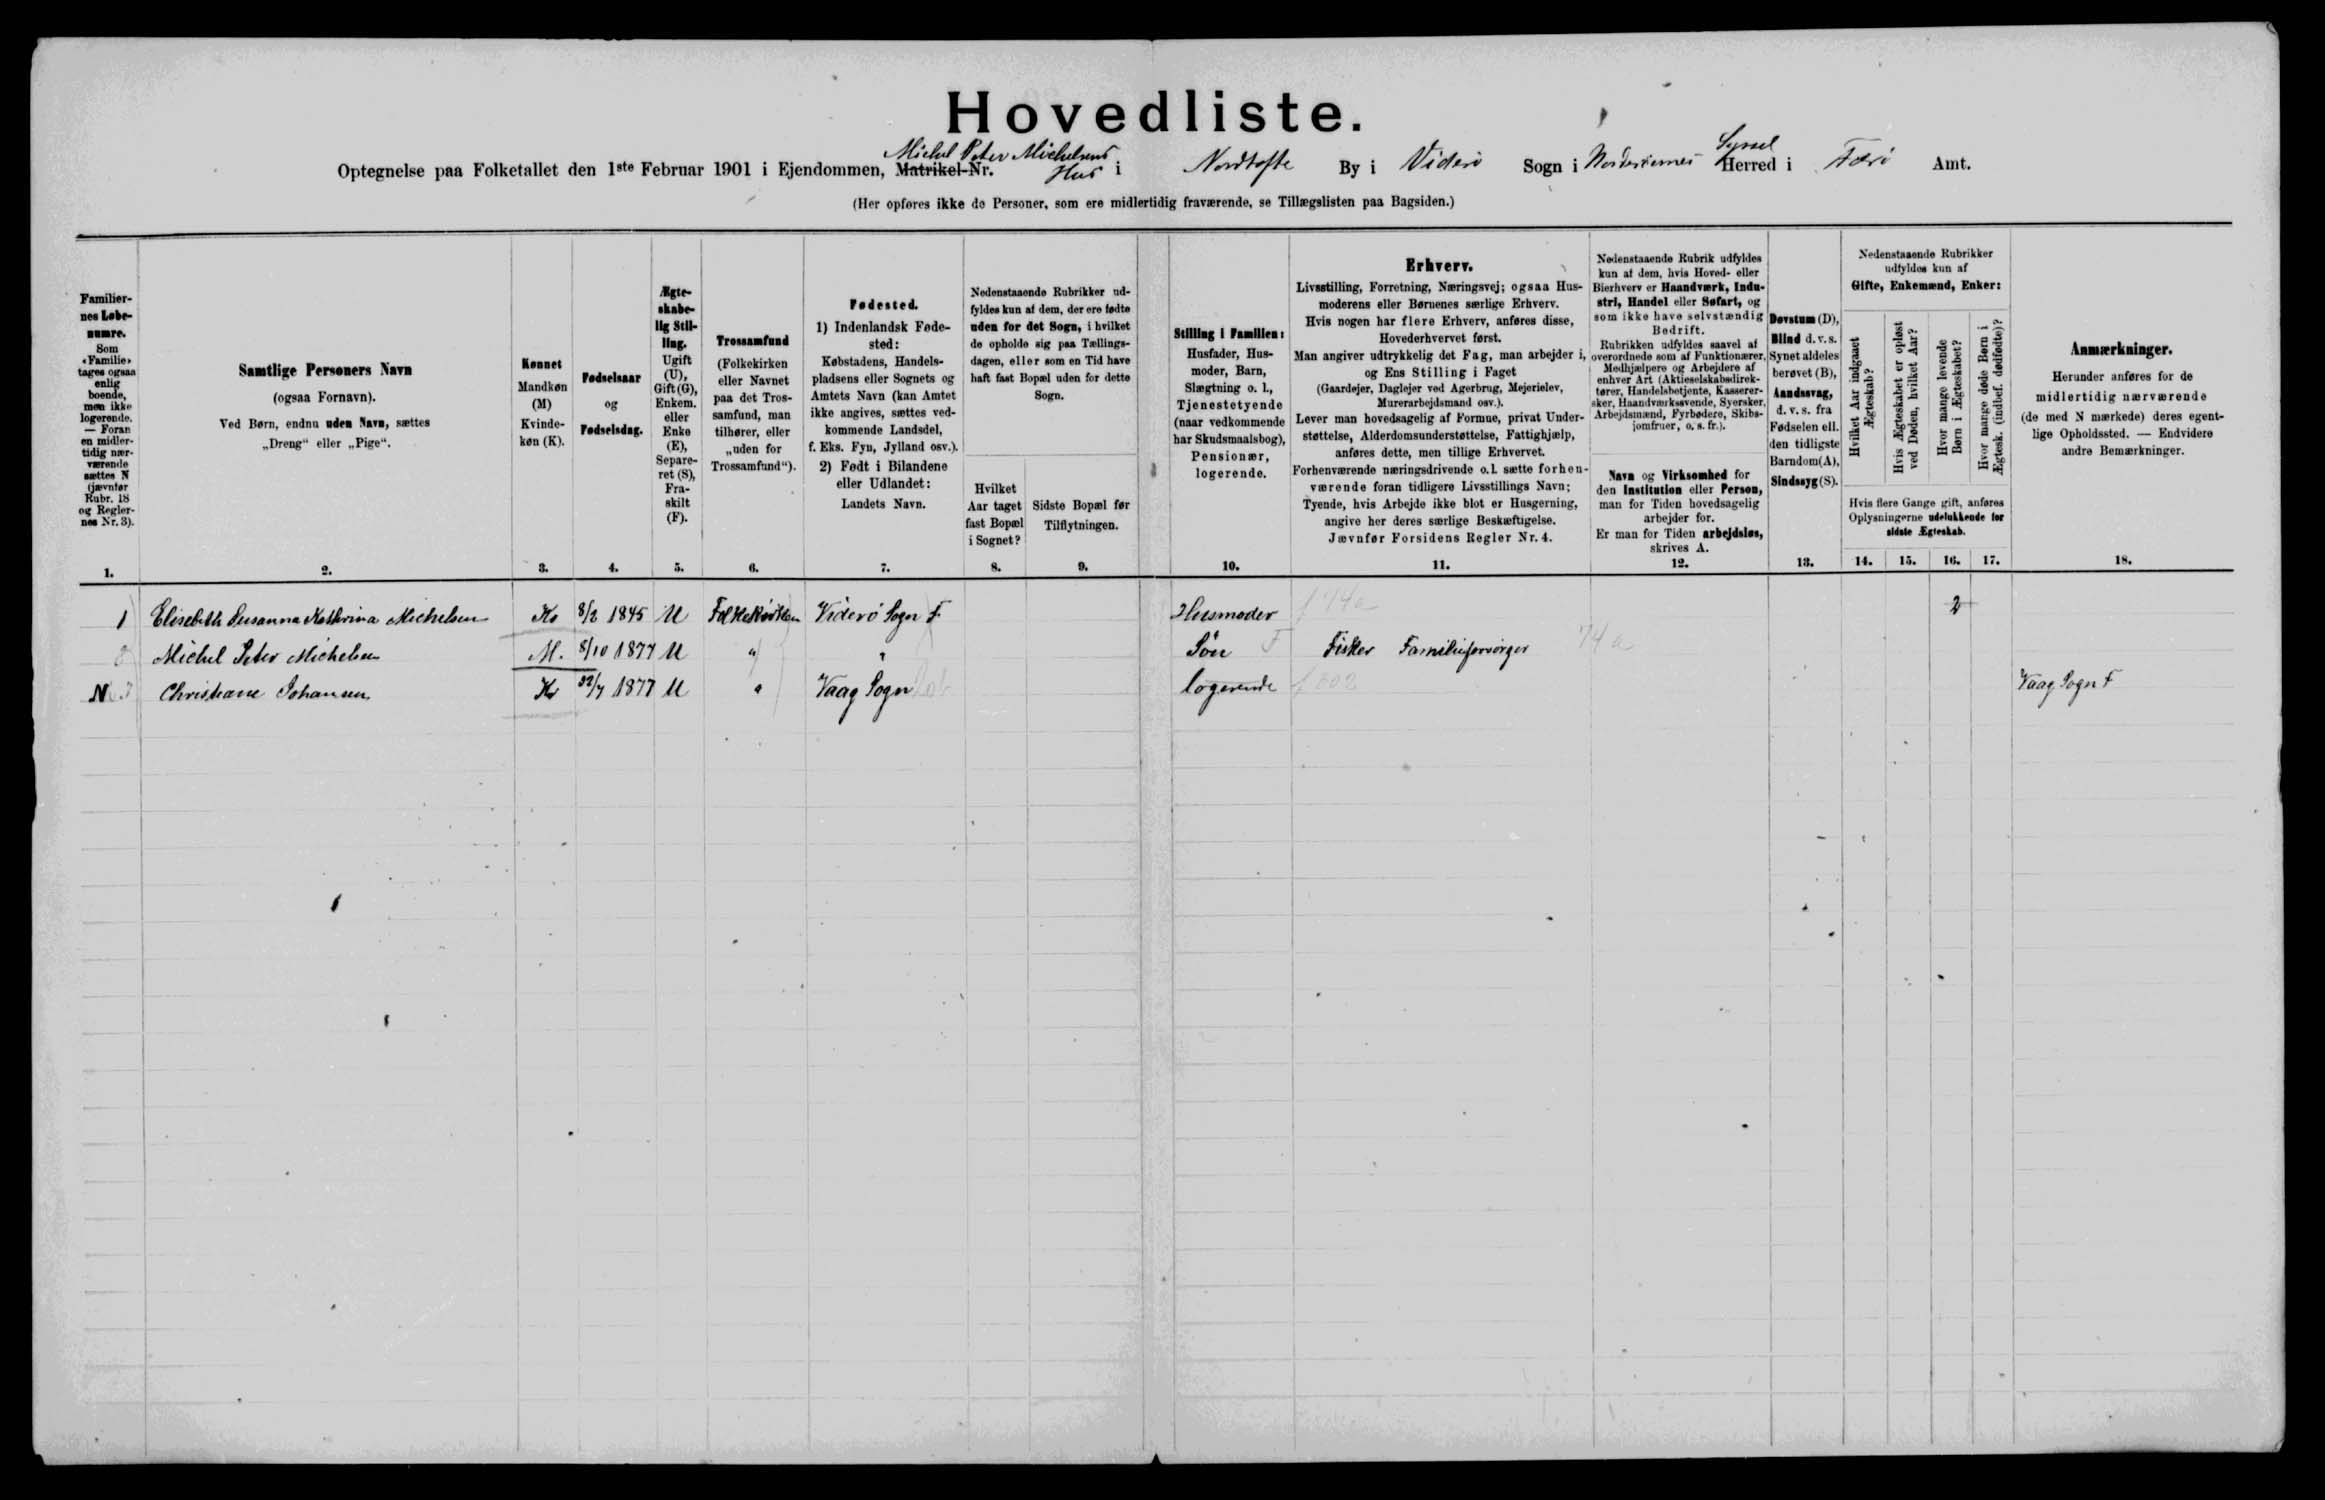 Hovedliste.
Michel Peter Michelsens
Syssel
Optegnelse paa Folketallet den 1ste Februar 1901 i Ejendommen, Matrikel-Nr. Hus i Nordtofte By i Viderö Sogn i Norderöernes Herred i Færö Amt.
(Her opføres ikke de Personer, som ere midlertidig fraværende, se Tillægslisten paa Bagsiden.)
Familier-
nes Løbe-
numre.
Som
«Familie»
tages ogsaa
enlig
boende,
men ikke
logerende.
— Foran
en midler-
tidig nær-
værende
sættes N
(jævnfør
Rubr. 18
og Regler-
nes Nr. 3).
1.
Samtlige Personers Navn
(ogsaa Fornavn).
Ved Børn, endnu uden Navn, sættes
„Dreng“ eller „Pige“.
2.
Kønnet
Mandkøn
(M)
Kvinde-
køn (K).
3.
Fødselsaar
og
Fødselsdag.
4.
Ægte-
skabe-
lig Stil-
ling.
Ugift
(U),
Gift(G),
Enkem.
eller
Enke
(E),
Separe-
ret (S),
Fra-
skilt
(F).
5.
Trossamfund
(Folkekirken
eller Navnet
paa det Tros-
samfund, man
tilhører, eller
„uden for
Trossamfund“).
6.
Fødested.
1) Indenlandsk Føde-
sted:
Købstadens, Handels-
pladsens eller Sognets og
Amtets Navn (kan Amtet
ikke angives, sættes ved-
kommende Landsdel,
f. Eks. Fyn, Jylland osv.).
2) Født i Bilandene
eller Udlandet:
Landets Navn.
7.
Nedenstaaende Rubrikker ud-
fyldes kun af dem, der ere fødte
uden for det Sogn, i hvilket
de opholde sig paa Tællings-
dagen, eller som en Tid have
haft fast Bopæl uden for dette
Sogn.
Hvilket
Aar taget
fast Bopæl
i Sognet?
8.
Sidste Bopæl før
Tilflytningen.
9.
Stilling i Familien:
Husfader, Hus-
moder, Barn,
Slægtning o. l.,
Tjenestetyende
(naar vedkommende
har Skudsmaalsbog),
Pensionær,
logerende.
10.
Erhverv.
Livsstilling, Forretning, Næringsvej; ogsaa Hus-
moderens eller Børnenes særlige Erhverv.
Hvis nogen har flere Erhverv, anføres disse,
Hovederhvervet først.
Man angiver udtrykkelig det Fag, man arbejder i,
og Ens Stilling i Faget
(Gaardejer, Daglejer ved Agerbrug, Mejerielev,
Murerarbejdsmand osv.).
Lever man hovedsagelig af Formue, privat Under-
støttelse, Alderdomsunderstøttelse, Fattighjælp,
anføres dette, men tillige Erhvervet.
Forhenværende næringsdrivende o.l. sætte forhen-
værende foran tidligere Livsstillings Navn;
Tyende, hvis Arbejde ikke blot er Husgerning,
angive her deres særlige Beskæftigelse.
Jævnfør Forsidens Regler Nr. 4.
11.
Nedenstaaende Rubrik udfyldes
kun af dem, hvis Hoved- eller
Bierhverv er Haandværk, Indu-
stri, Handel eller Søfart, og
som ikke have selvstændig
Bedrift.
Rubrikken udfyldes saavel af
overordnede som af Funktionærer,
Medhjælpere og Arbejdere af
enhver Art (Aktieselskabsdirek-
tører, Handelsbetjente, Kasserer-
sker, Haandværkssvende, Syersker,
Arbejdsmænd, Fyrbødere, Skibs-
jomfruer, o. s. fr.).
Navn og Virksomhed for
den Institution eller Person,
man for Tiden hovedsagelig
arbejder for.
Er man for Tiden arbejdsløs,
skrives A.
12.
Døvstum (D),
Blind d. v. s.
Synet aldeles
berøvet (B),
Aandssvag,
d. v. s. fra
Fødselen ell.
den tidligste
Barndom(A),
Sindssyg (S).
13.
Nedenstaaende Rubrikker
udfyldes kun af
Gifte, Enkemænd, Enker:
Hvilket Aar indgaaet
Ægteskab?
Hvis Ægteskabet er opløst
ved Døden, hvilket Aar?
Hvor mange levende
Børn i Ægteskabet?
Hvor mange døde Børn i
Ægtesk. (indbef. dødfødte)?
Hvis flere Gange gift, anføres
Oplysningerne udelukkende for
sidste Ægteskab.
14. 15. 16. 17.
Anmærkninger.
Herunder anføres for de
midlertidig nærværende
(de med N mærkede) deres egent-
lige Opholdssted. — Endvidere
andre Bemærkninger.
18.
1 Elisebeth Susanna Kathrina Michelsen K 8/2 1845 U Folkekirken Viderö Sogn F. Husmoder 2
Michel Peter Michelsen M. 8/10 1877 U " " Sön F Fisker Familieforsörger 74 a
N Christiane Johansen K 22/7 1877 U " Vaag Sogn logerende Vaag Sogn F